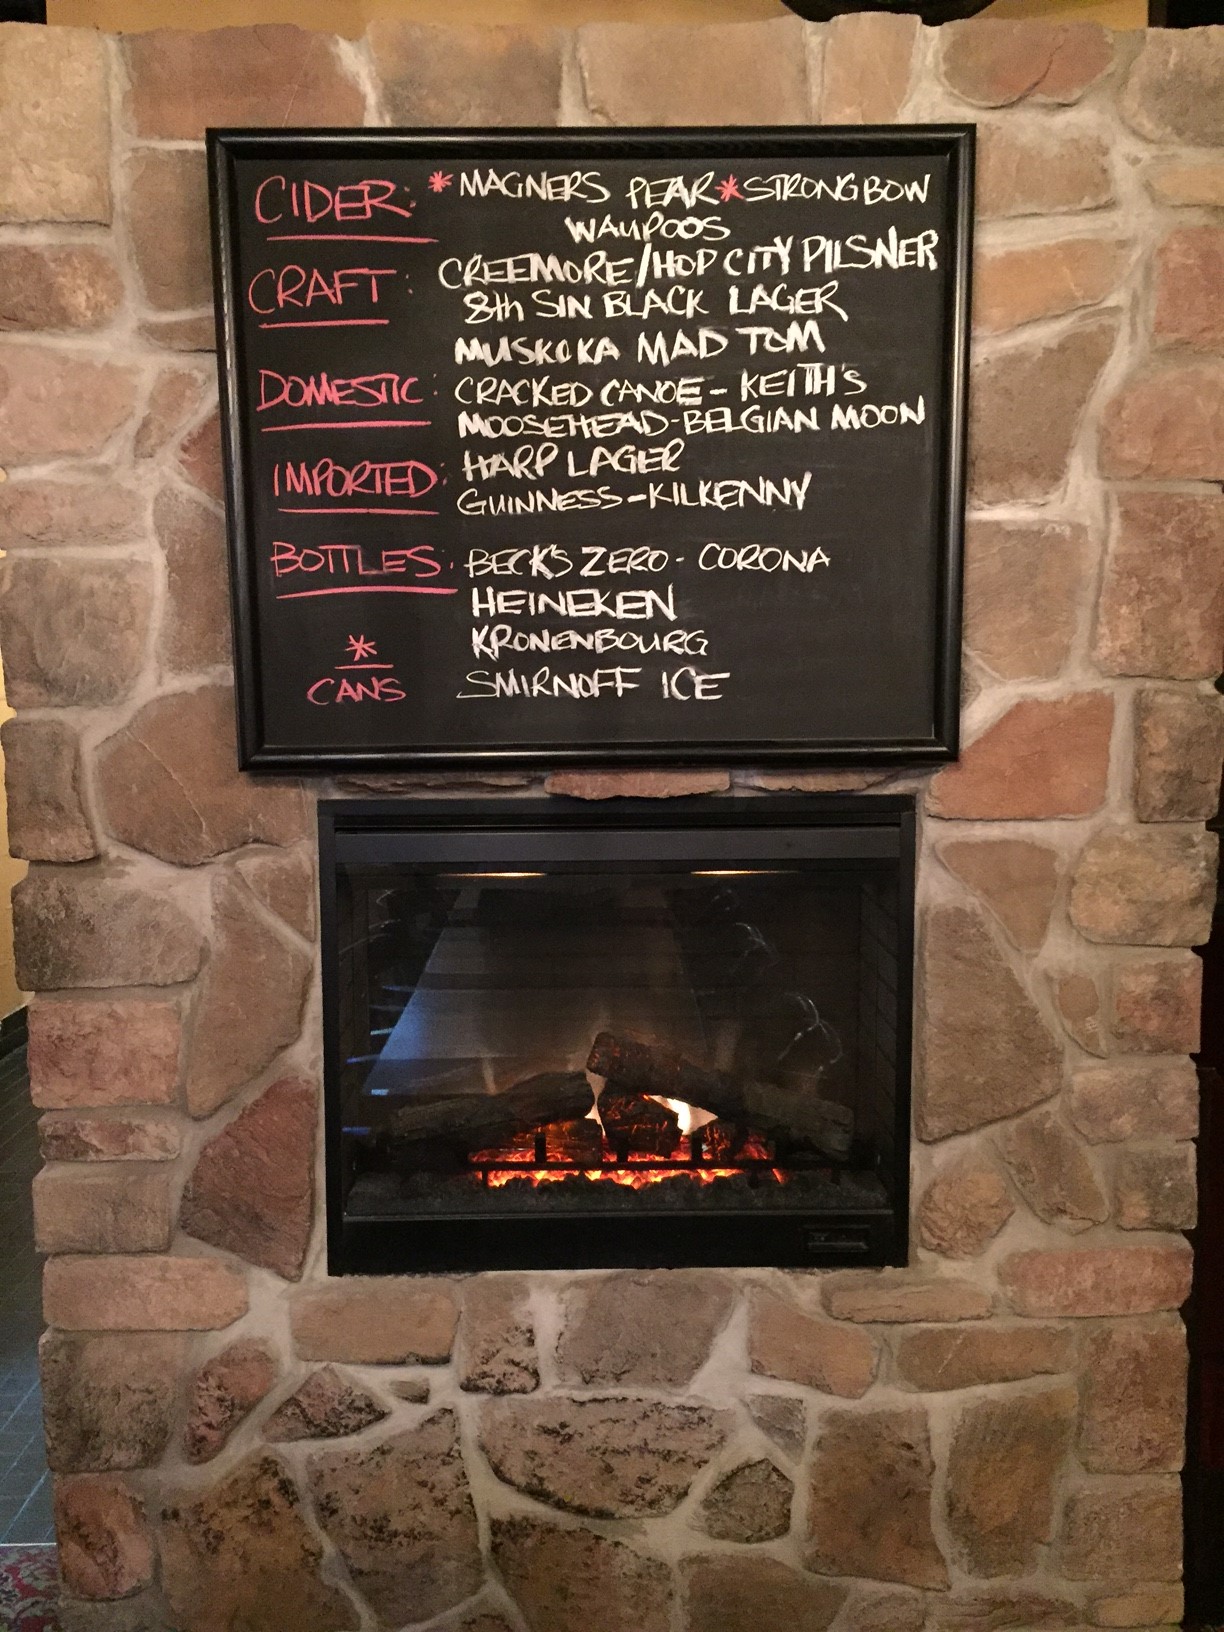 CIDER: *MAGNERS PEAR *STRONGBOW
WAUPOOS
CRAFT: CREEMORE/HOP CITY PILSNER
8th SIN BLACK LAGER
MUSKOKA MAD TOM
DOMESTIC: CRACKED CANOE - KEITH'S
MOOSEHEAD - BELGIAN MOON
IMPORTED: HARP LAGER
GUINNESS - KILKENNY
BOTTLES: BECK'S ZERO - CORONA
HEINEKEN
* KRONENBOURG
CANS SMIRNOFF ICE